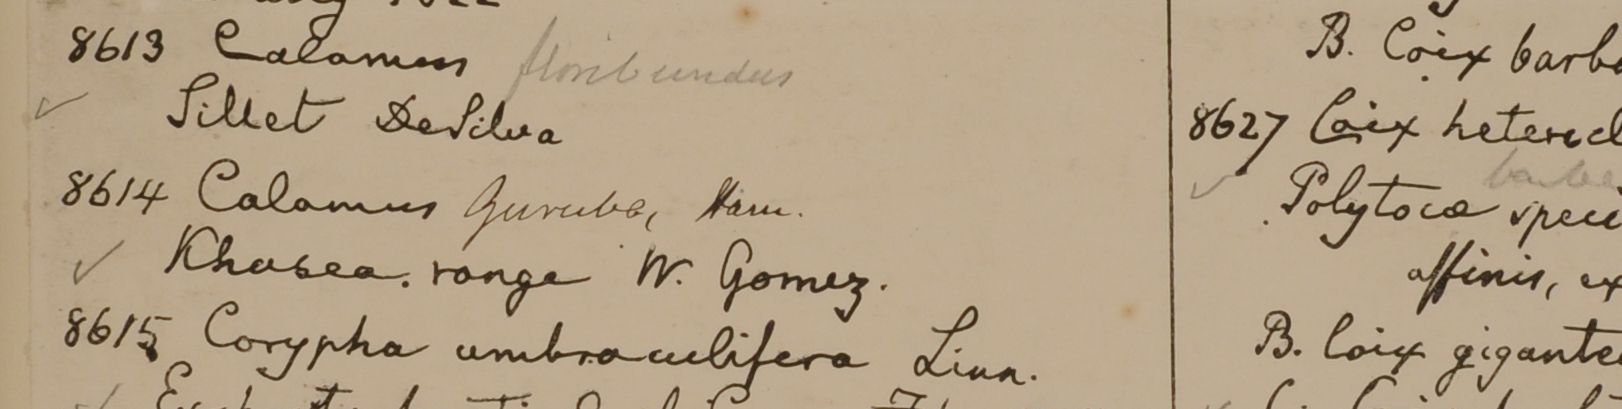 1822
8613 Calamus floribundus
✓ Sillet DeSilva
8614 Calamus Guruba, Ham.
✓ Khasea. range W. Gomez.
8615 Corypha umbraculifera Linn.
B. Coix barba
8627 Coix heterocl
✓ Polytoca speci
affinis, ex
B. Coix gigante